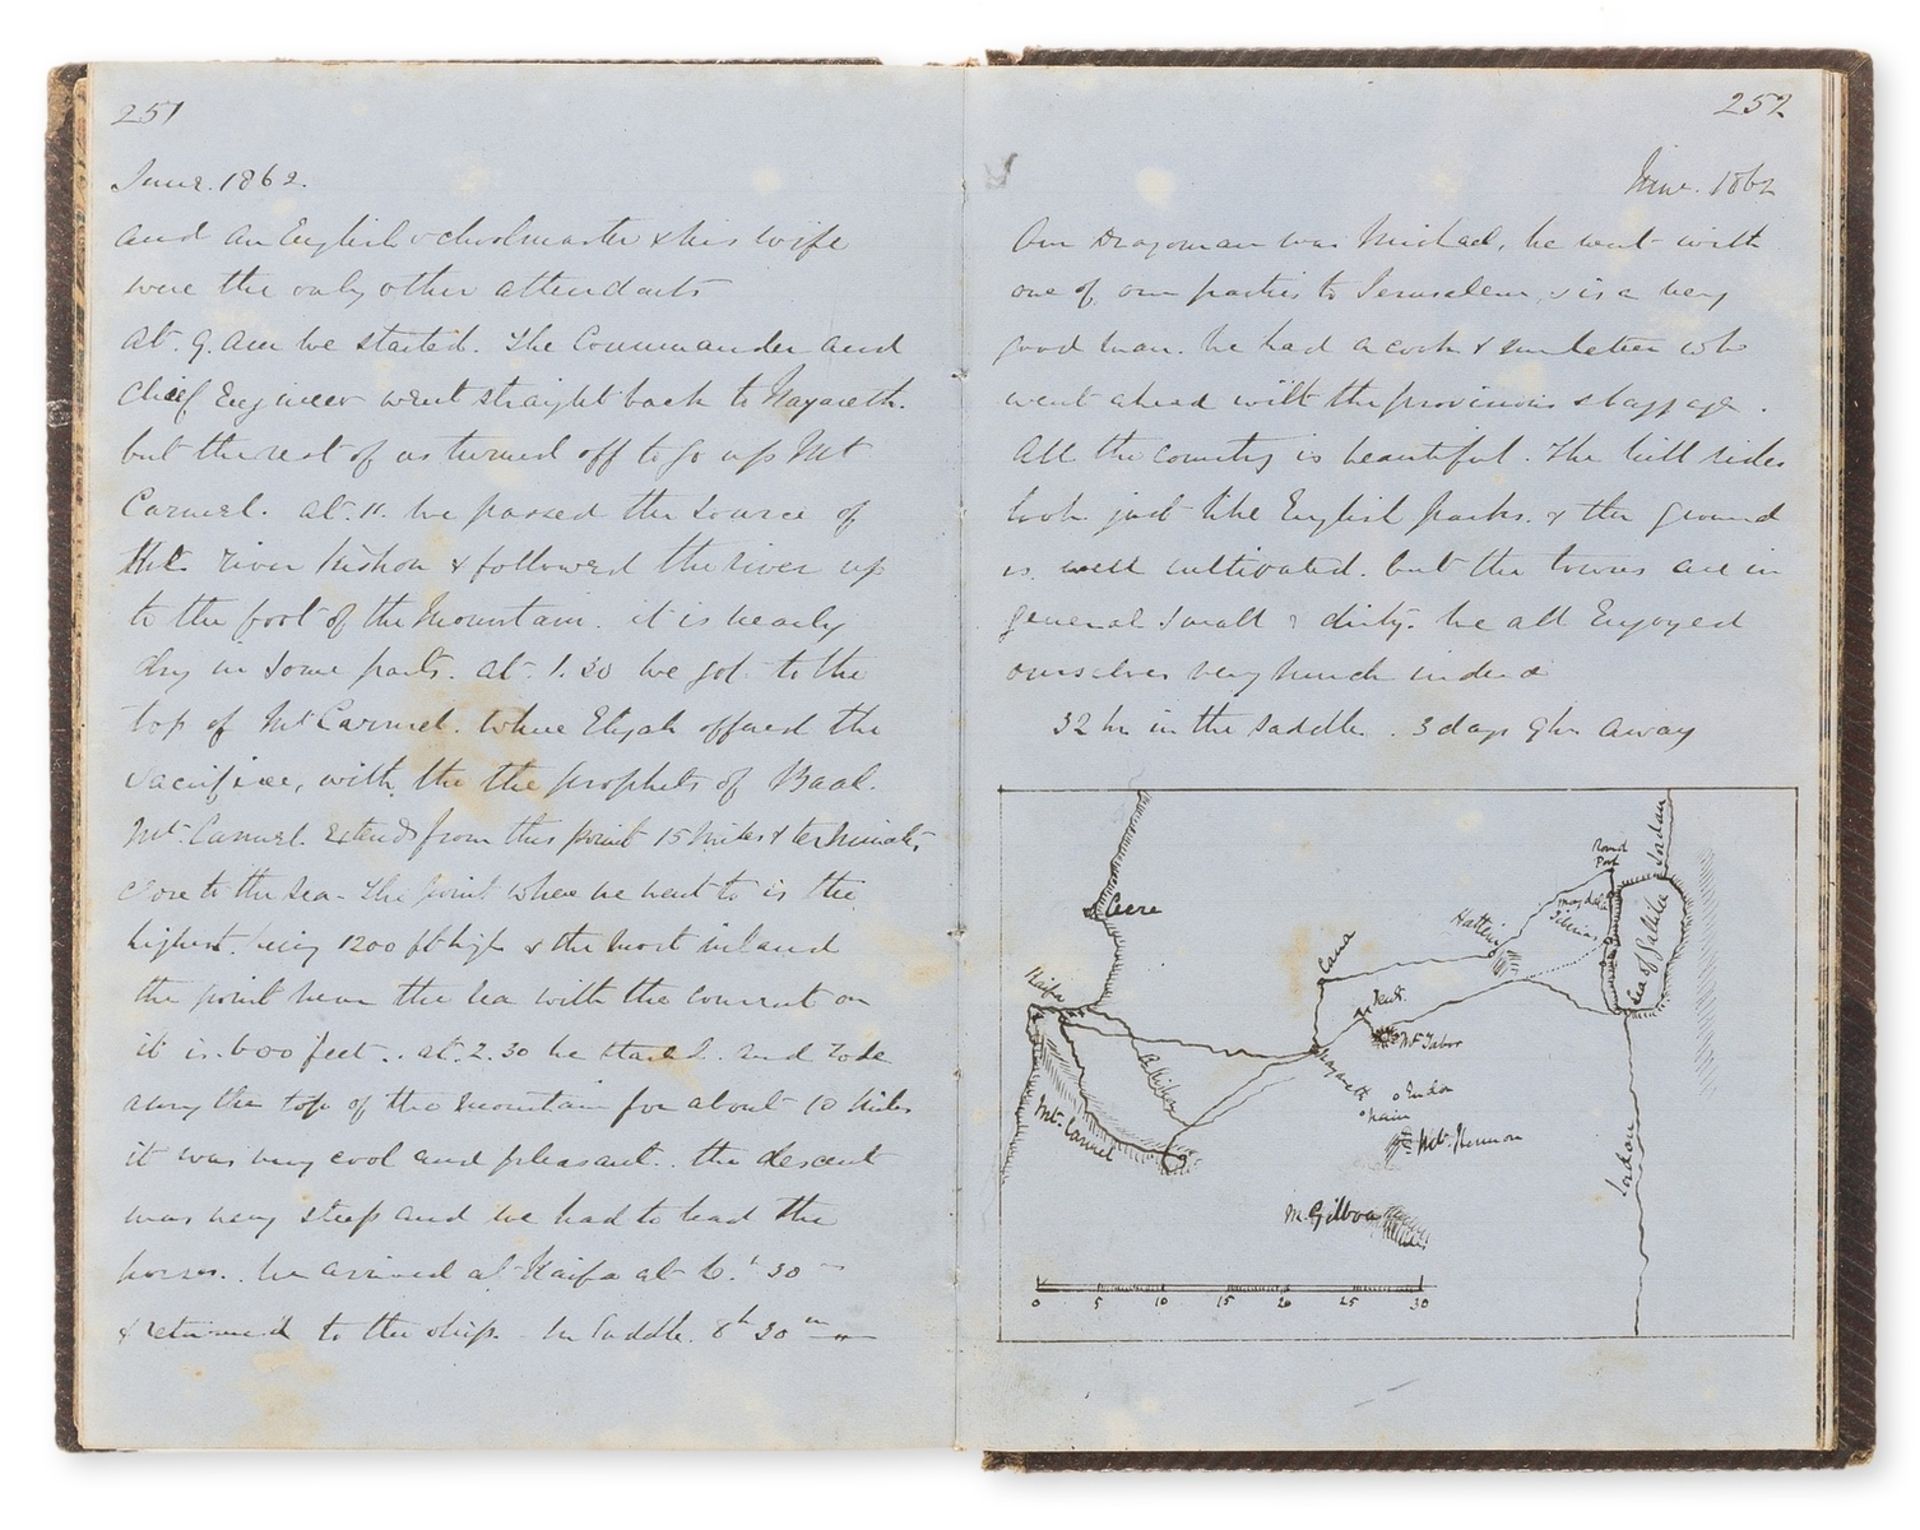 251
June. 1862.
and an English schoolmaster & his wife
were the only other attendants
at. 9. am we started. The Commander and
Chief Engineer went straight back to Nazareth.
but the rest of us turned off to go up Mt
Carmel. at. 11. we passed the source of
the river Kishon & followed the river up
to the foot of the Mountain. it is nearly
dry in some parts. at. 1.30 we got to the
top of Mt. Carmel. where Elijah offered the
sacrifice, with the the prophets of Baal.
Mt. Carmel. extends from this point 15 miles & terminates
close to the sea - The point where we went to is the
highest. being 1200 ft high & the most inland
the point near the sea with the convent on
it is. 600 feet.. at. 2.30 we started. and rode
along the top of the mountain for about 10 miles
it was very cool and pleasant.. the descent
was very steep and we had to lead the
horses.. we arrived at Kaifa at 6.h 30 m
& returned to the ship. - In saddle. 8h 30m
252
June. 1862
Our Dragoman was Michael, he went with
one of our parties to Jerusalem, & is a very
good man. he had a cook & who
went ahead with the provisions & baggage.
All the country is beautiful. The hill sides
look just like English parks. & the ground
is. well cultivated. but the towns are in
general small & dirty. We all Enjoyed
ourselves very much indeed
32 hr in the saddle. 3 days 9 hr away
Acre
Kaifa
Mt. Carmel
R. Kishon
Nazareth
Cana
Hattin
Round Port
Magdala
Tiberias
Sea of Galilee
Jordan
Tent.
Mt Tabor
Endor
Nain
Mt. Hermon
M. Gilboa
Jordan
0 5 10 15 20 25 30